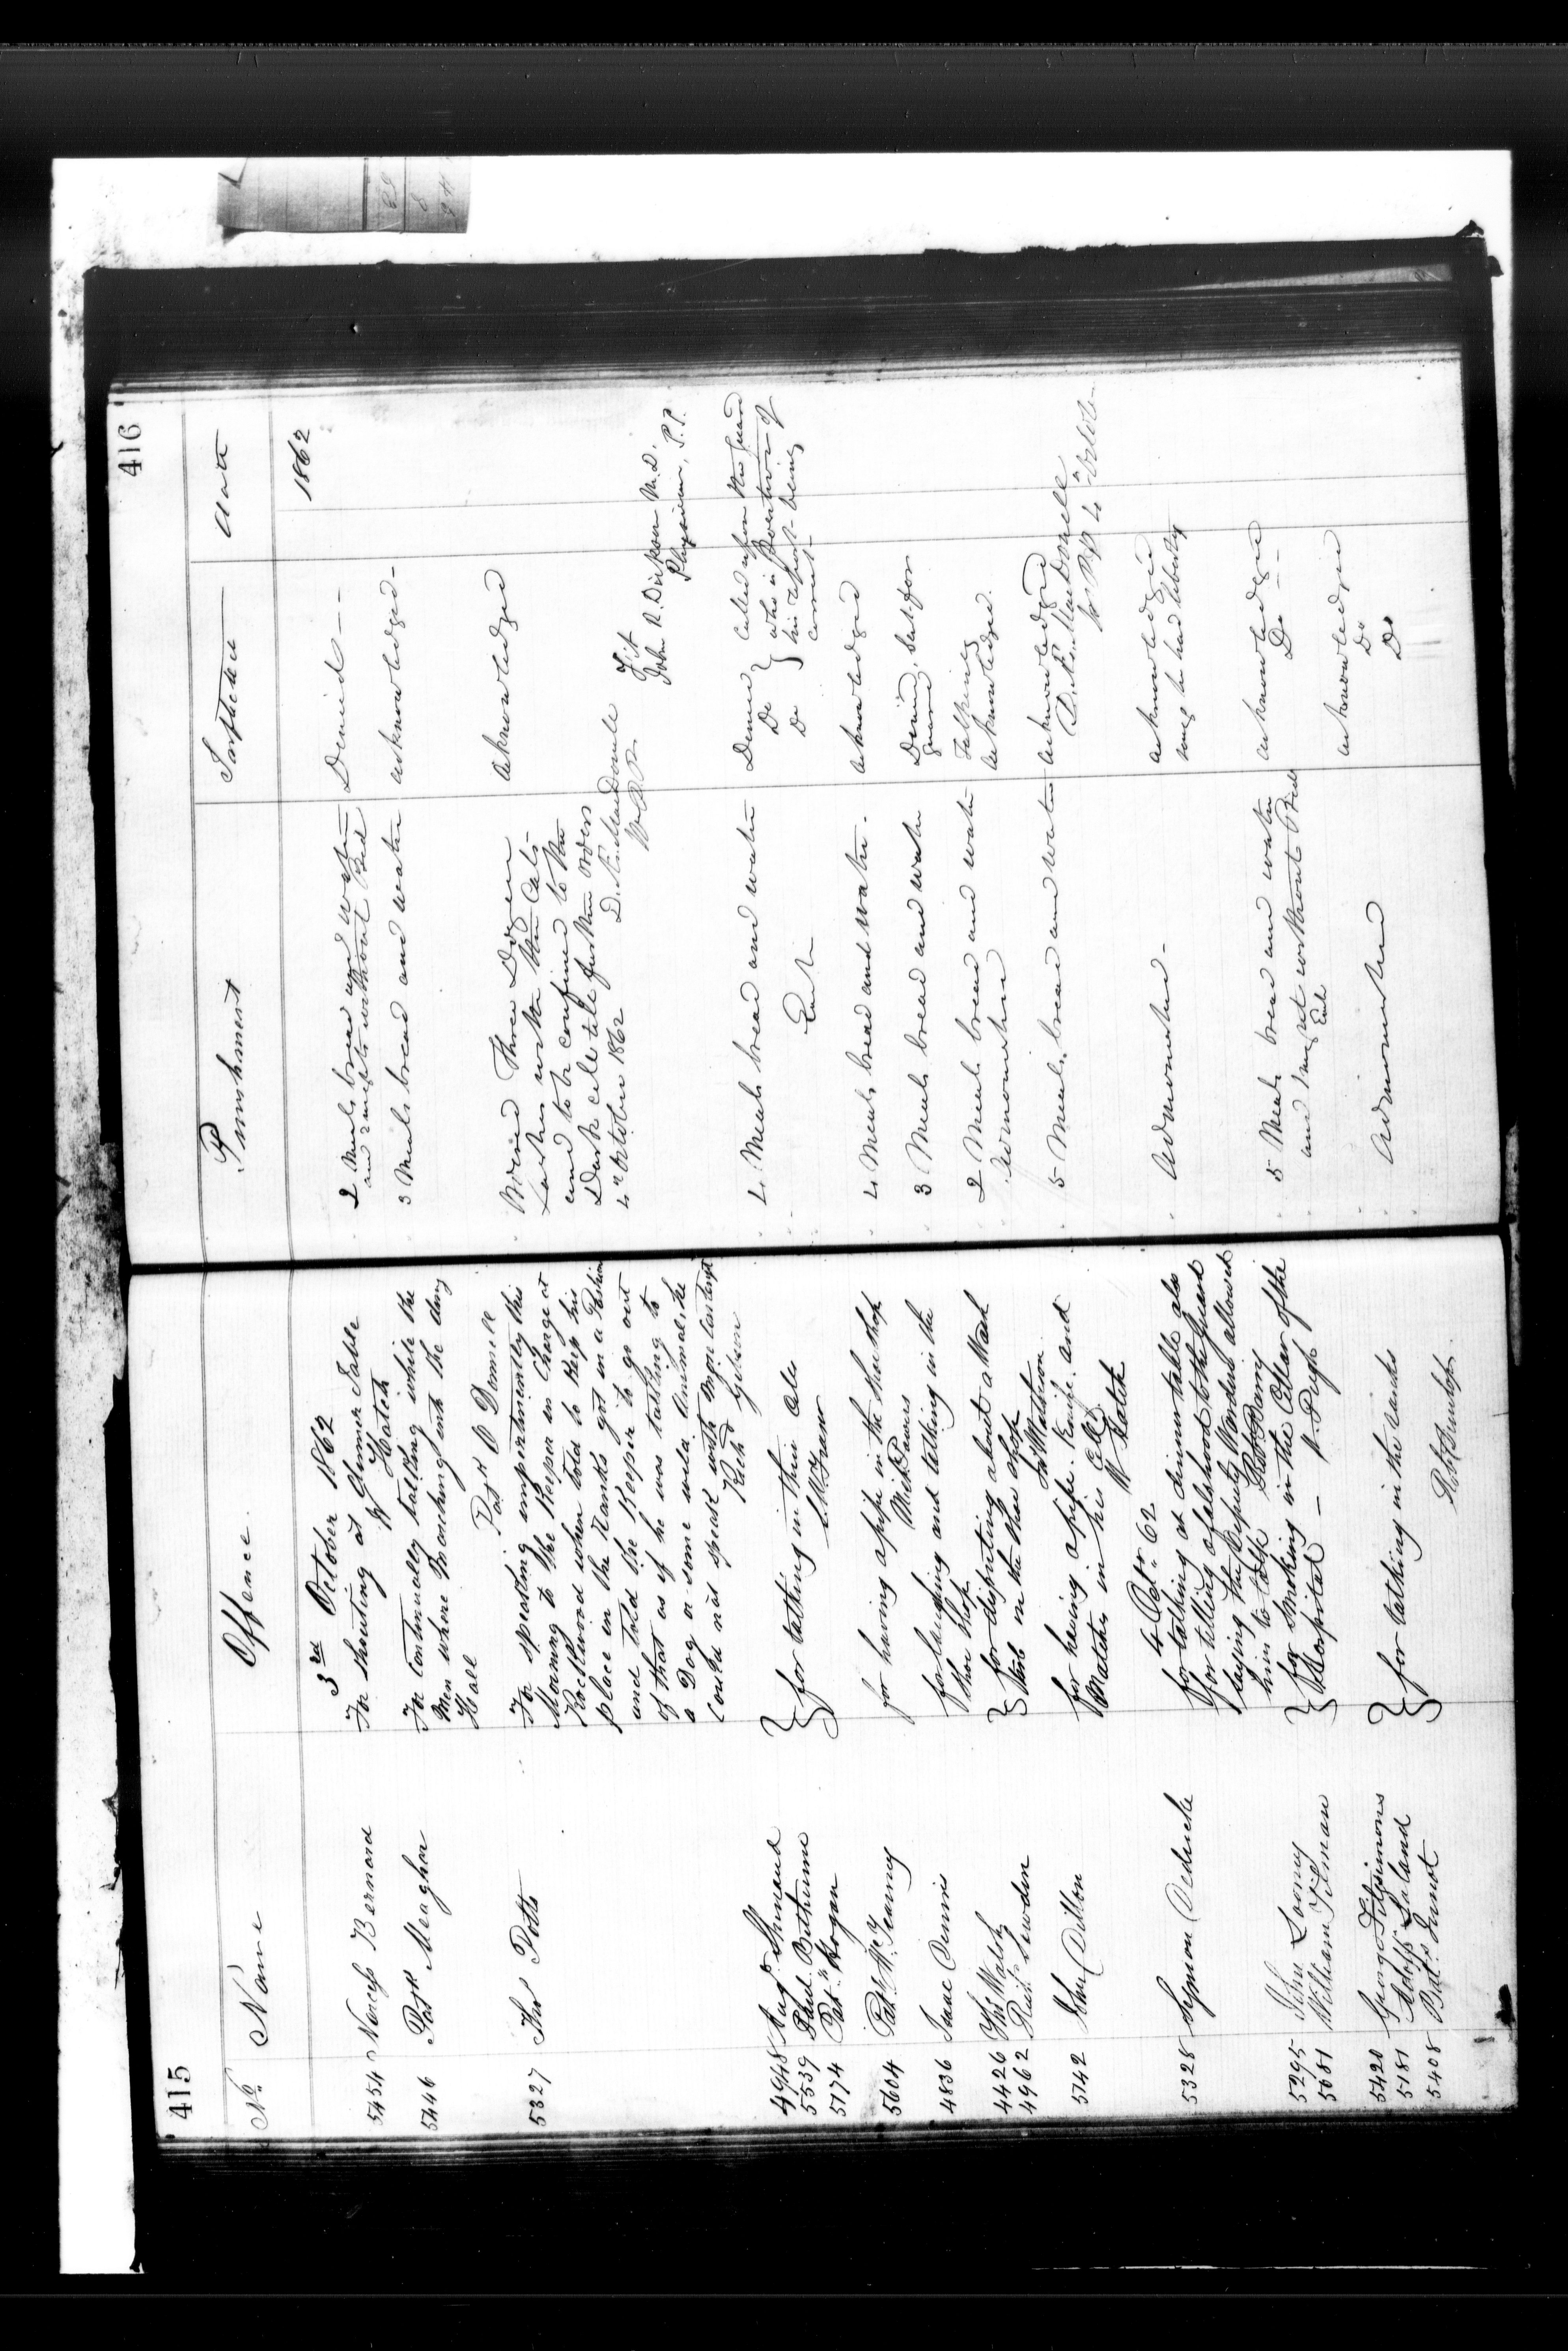 415
No. Name Offence.
3rd October 1862
5454 Narcess Bernard For shouting at Dinner Table
W Hatch
5446 Patk Meagher For continually talking while the
Men where Marching into the dining
Hall
Patk O Donnell
5327 Thos Potts For speaking impertinently this
Morning to the Keeper in Charge at
Rockwood when told to keep his
place in the Ranks got in a Passion
and told the Keeper to go out
of that as if he was talking to
a Dog or some wild Animal, he
could not speak with more contempt
Richd Gibson
4948 Augt
5539 Paul Bethune for talking in their cells
5174 Patk Hogan
5604 Patk McTearney for having a pipe in the shoe shop
Mich Powers
4836 Isaac Dennis for laughing and talking in the
shoe shop
4426 Thos Walsh for disputing about a Wash
4962 Richd Sowden Tub in the shoe shop
5142 John Dillon for having a pipe. Knife. and
Matches in his Cell
W Hatch
4 Octr 62
5328 Symon Dedricke for talking at dinner table also
for telling a falshood to the Guard
saying the Deputy Warden allowed
him to talk
5295 John Looney for smoking in the Cellar of the
5081 William Tilman Hospital —
5420 George Fitzsimons
5181 Adolf Laland for talking in the ranks
5408 Bat.
416
Punishment Date
1862
2 Meals bread and water Denied - -
and 2 nights without Bed
3 Meals bread and water acknowledged -
Ordered Three Dozen acknowledged
Lashes with the Cats -
and to be confined to the
Dark cell till further orders
4" October 1862 D. Æneas MacDonell
W. P. P.
Fit
John R. Dickson M.D.
Physician, P.P.
4 Meals bread and water Denied Called upon the guard
Do who is Positive of
Each Do his report being
correct -
4 Meals bread and water - acknowledged
3 Meals bread and water Denied, sent for
guard
2 Meals bread and water Talking
Admonished acknowledged.
5 Meals bread and water acknowledged
D. Æ. MacDonell
W P P 4" October
Admonished - acknowledged
says he had liberty
5 Meals bread and water acknowledged
and 1 night without Bed Do - -
Each
Admonished acknowledged
Do
Do